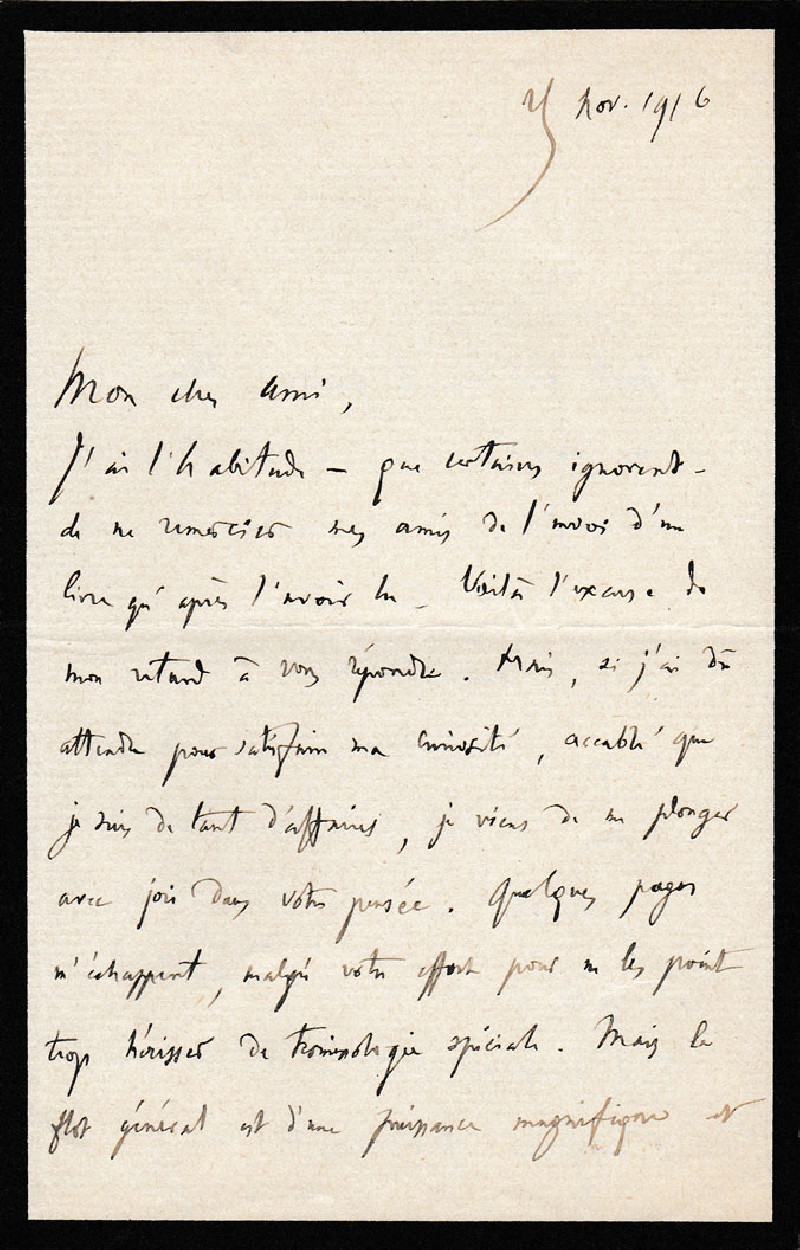 25 Nov. 1916
Mon cher ami,
J'ai l'habitude – que certains ignorent –
de ne remercier mes amis de l'envoi d'un
livre qu'après l'avoir lu – Voilà l'excuse de
mon retard à vous répondre. Mais, si j'ai dû
attendre pour satisfaire ma curiosité, accablé que
je suis de tant d'affaires, je viens de me plonger
avec joie dans votre pensée. Quelques pages
m'échappent, malgré votre effort pour ne les point
trop hérisser de terminologie spéciale. Mais le
flot général est d'une puissance magnifique et